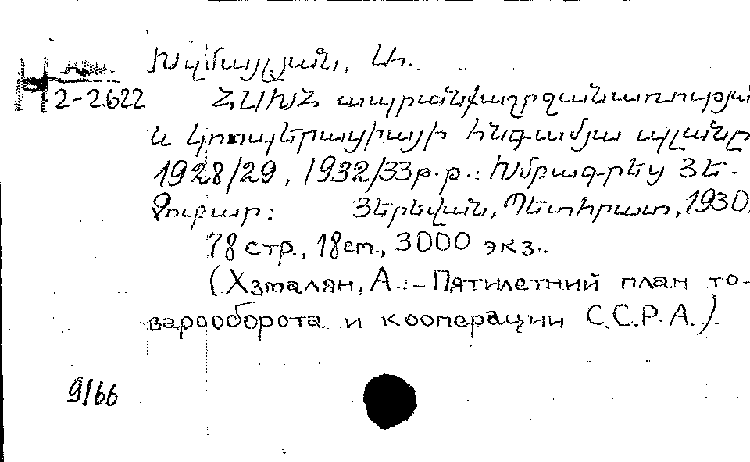 Խզմալյան, Ա.
2-2622 ՀՍԽՀ ապրանքաշրջանառության
և կոոպերացիայի հնգամյա պլանը
1928/29, 1932/33թ.թ.: Խմբագրեց Տեր-
Յերեվան, Պետհրատ, 1930.
78 стр., 18 см, 3000 экз..
(Хзмалян, А.:- Пятилетний план то-
варооборота и кооперации С.С.Р.А.).
9/66